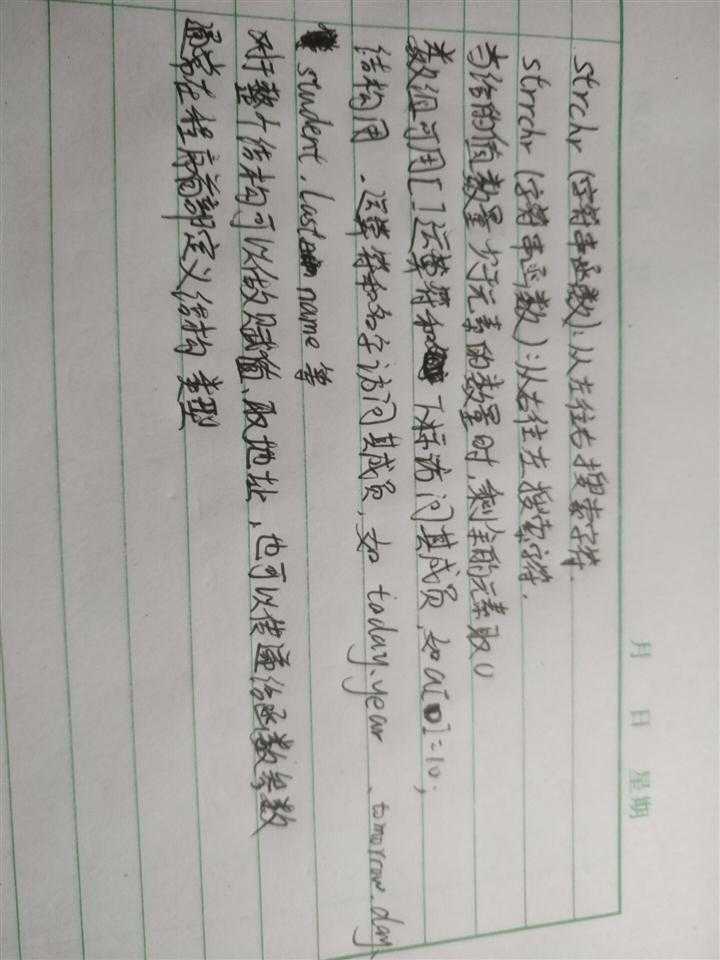 月 日 星期
strchr (字符串函数):从左往右搜索字符.
strrchr (字符串函数):从右往左搜索字符.
当给的值数量少于元素的数量时,剩余的元素取0
数组可用[]运算符和下标访问其成员,如a[0]=10;
结构用.运算符和名字访问其成员,如 today.year、tomorrow.day、
student.lastname 等
对于整个结构可以做赋值、取地址,也可以传递给函数参数
通常在程序前部定义结构类型